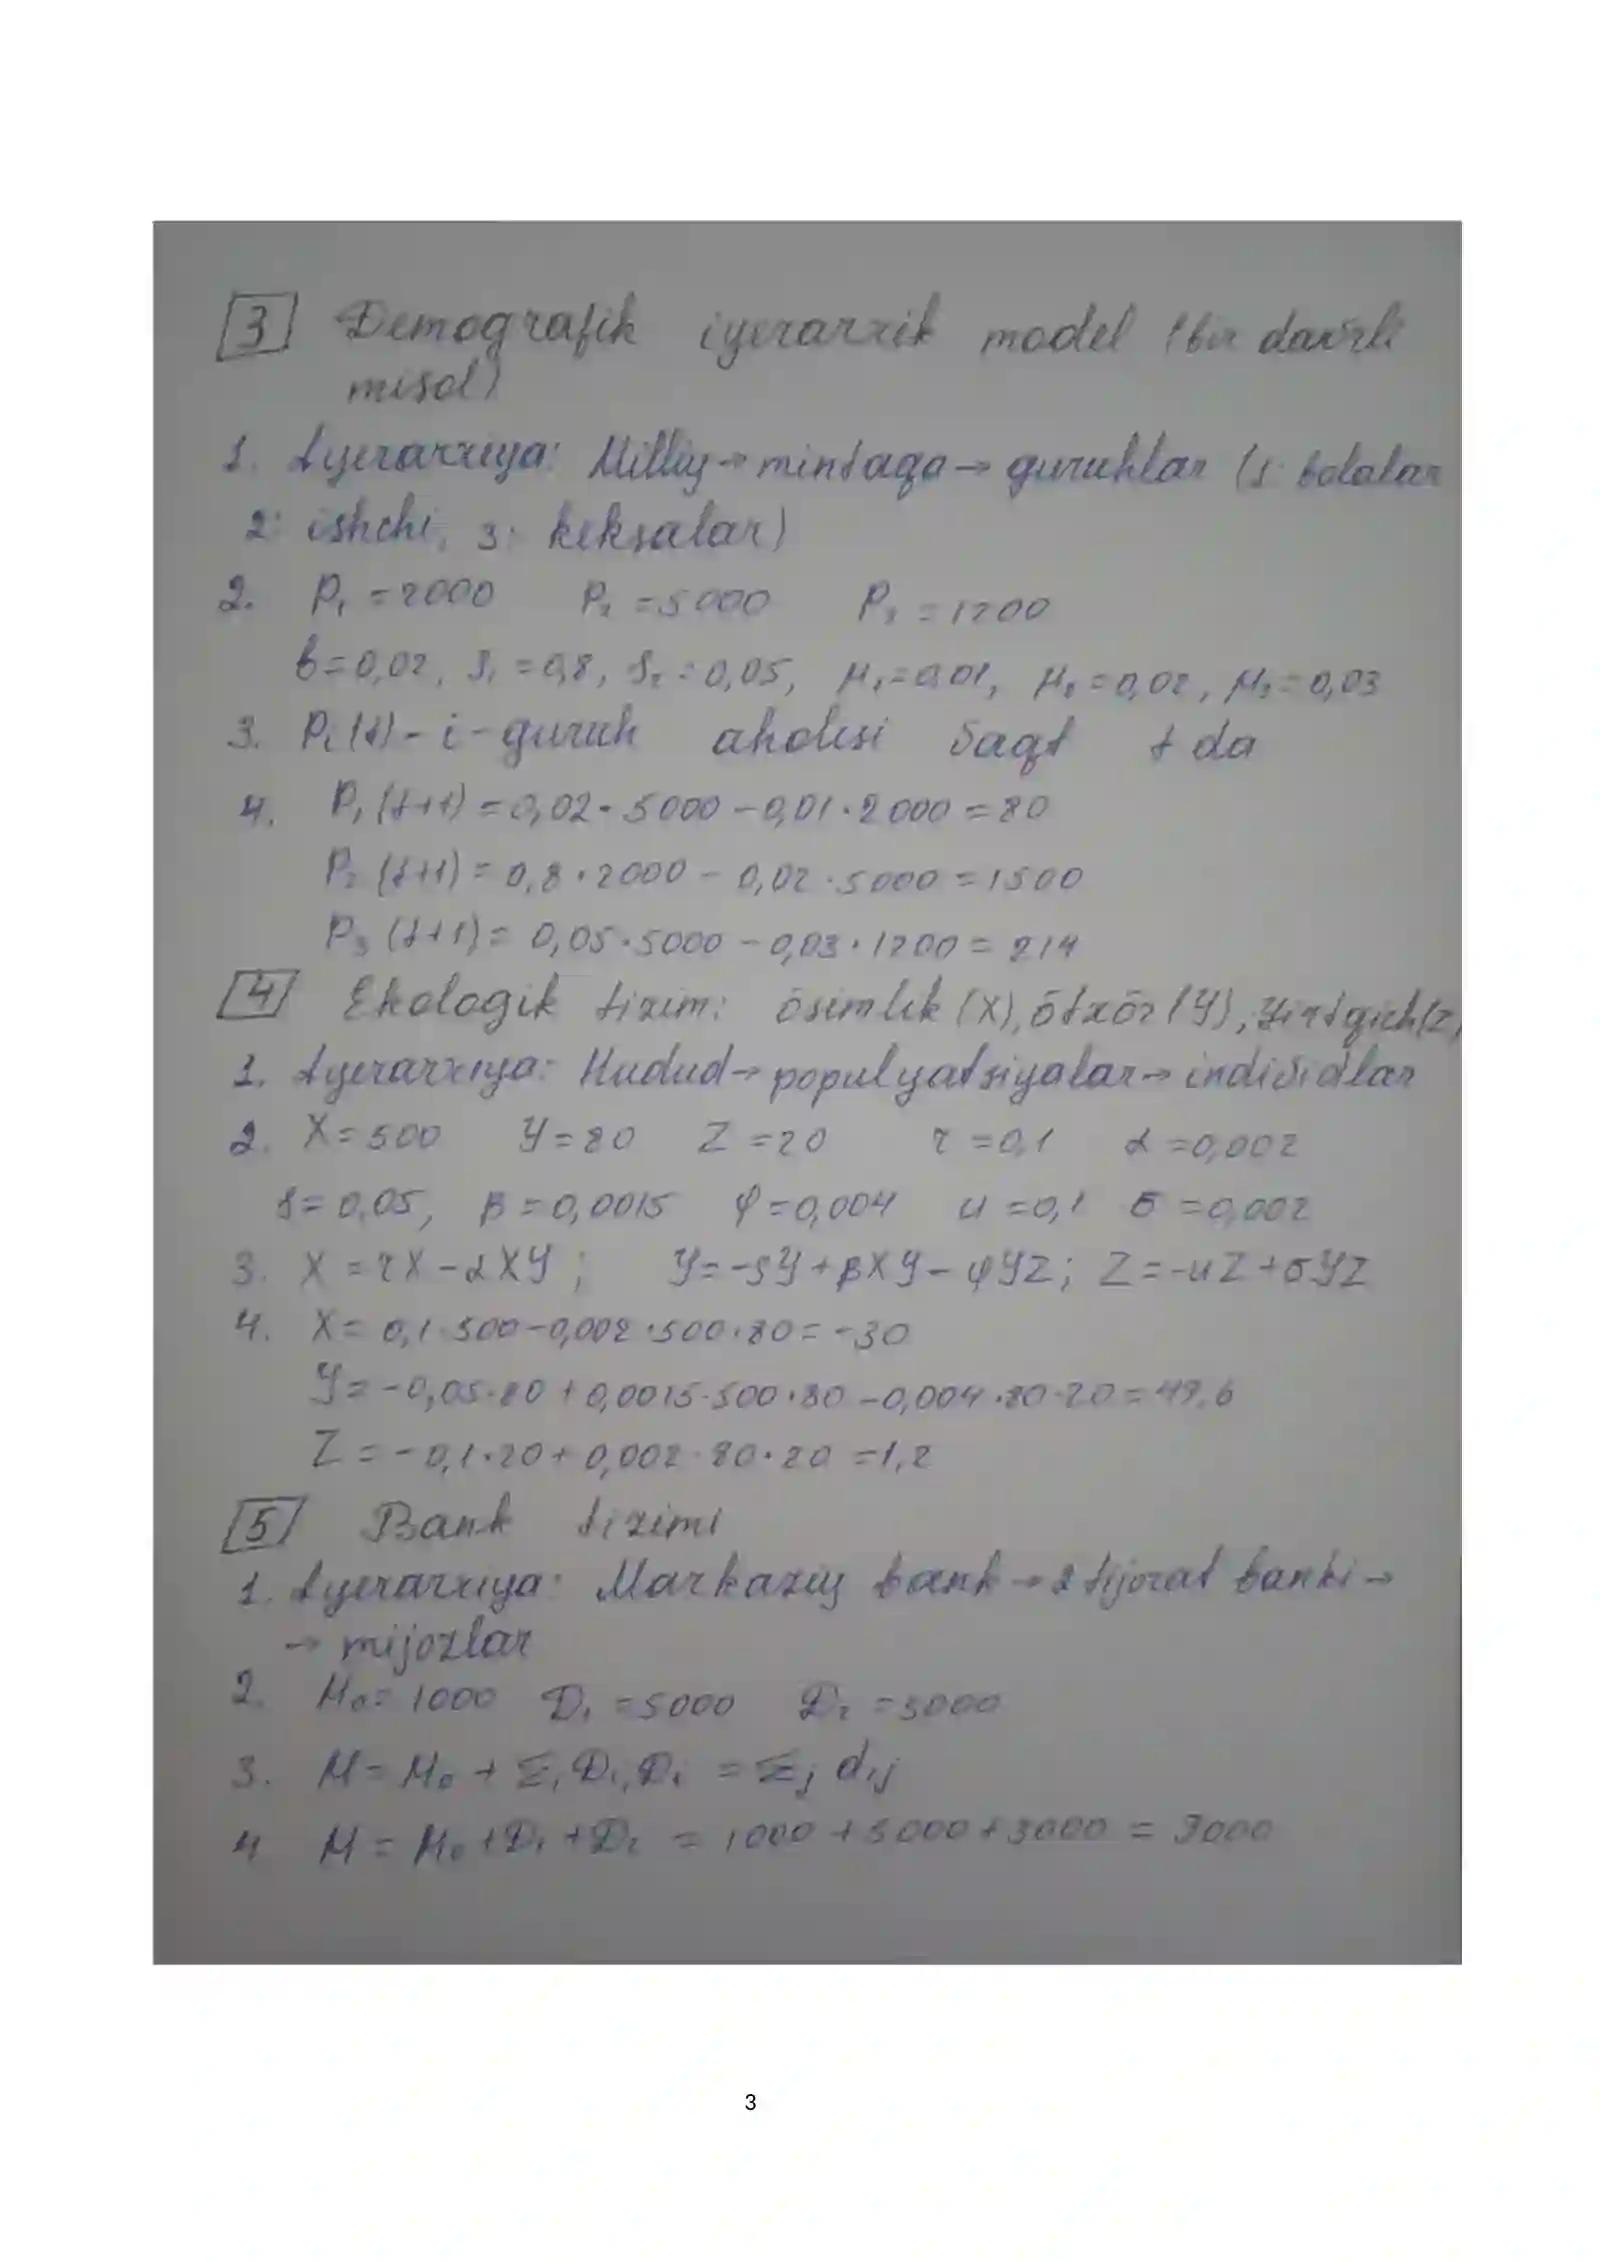 3 Demografik iyerarxik model (bir davrli
misol)
1. Iyerarxiya: Milliy → mintaqa → guruhlar (1: bolalar
2: ishchi, 3: keksalar)
2. P₁ = 2000 P₂ = 5000 P₃ = 1200
b = 0,02, S₁ = 0,8, S₂ = 0,05, μ₁ = 0,01, μ₂ = 0,02, μ₃ = 0,03
3. Pᵢ(t) - i - guruh aholisi vaqt t da
4. P₁(t+1) = 0,02 · 5000 - 0,01 · 2000 = 80
P₂(t+1) = 0,8 · 2000 - 0,02 · 5000 = 1500
P₃(t+1) = 0,05 · 5000 - 0,03 · 1200 = 214
4 Ekologik tizim: ōsimlik (X), ōtxōr (Y), yirtqich (Z)
1. Iyerarxiya: Hudud → populyatsiyalar → individlar
2. X = 500 Y = 80 Z = 20 r = 0,1 α = 0,002
δ = 0,05, β = 0,0015 φ = 0,004 u = 0,1 σ = 0,002
3. X = rX - αXY; Y = -δY + βXY - φYZ; Z = -uZ + σYZ
4. X = 0,1 · 500 - 0,002 · 500 · 80 = -30
Y = -0,05 · 80 + 0,0015 · 500 · 80 - 0,004 · 80 · 20 = 49,6
Z = -0,1 · 20 + 0,002 · 80 · 20 = 1,2
5 Bank tizimi
1. Iyerarxiya: Markaziy bank → 2 tijorat banki →
→ mijozlar
2. M₀ = 1000 D₁ = 5000 D₂ = 3000
3. M = M₀ + Σᵢ Dᵢ, Dᵢ = Σⱼ dᵢⱼ
4 M = M₀ + D₁ + D₂ = 1000 + 5000 + 3000 = 9000
3